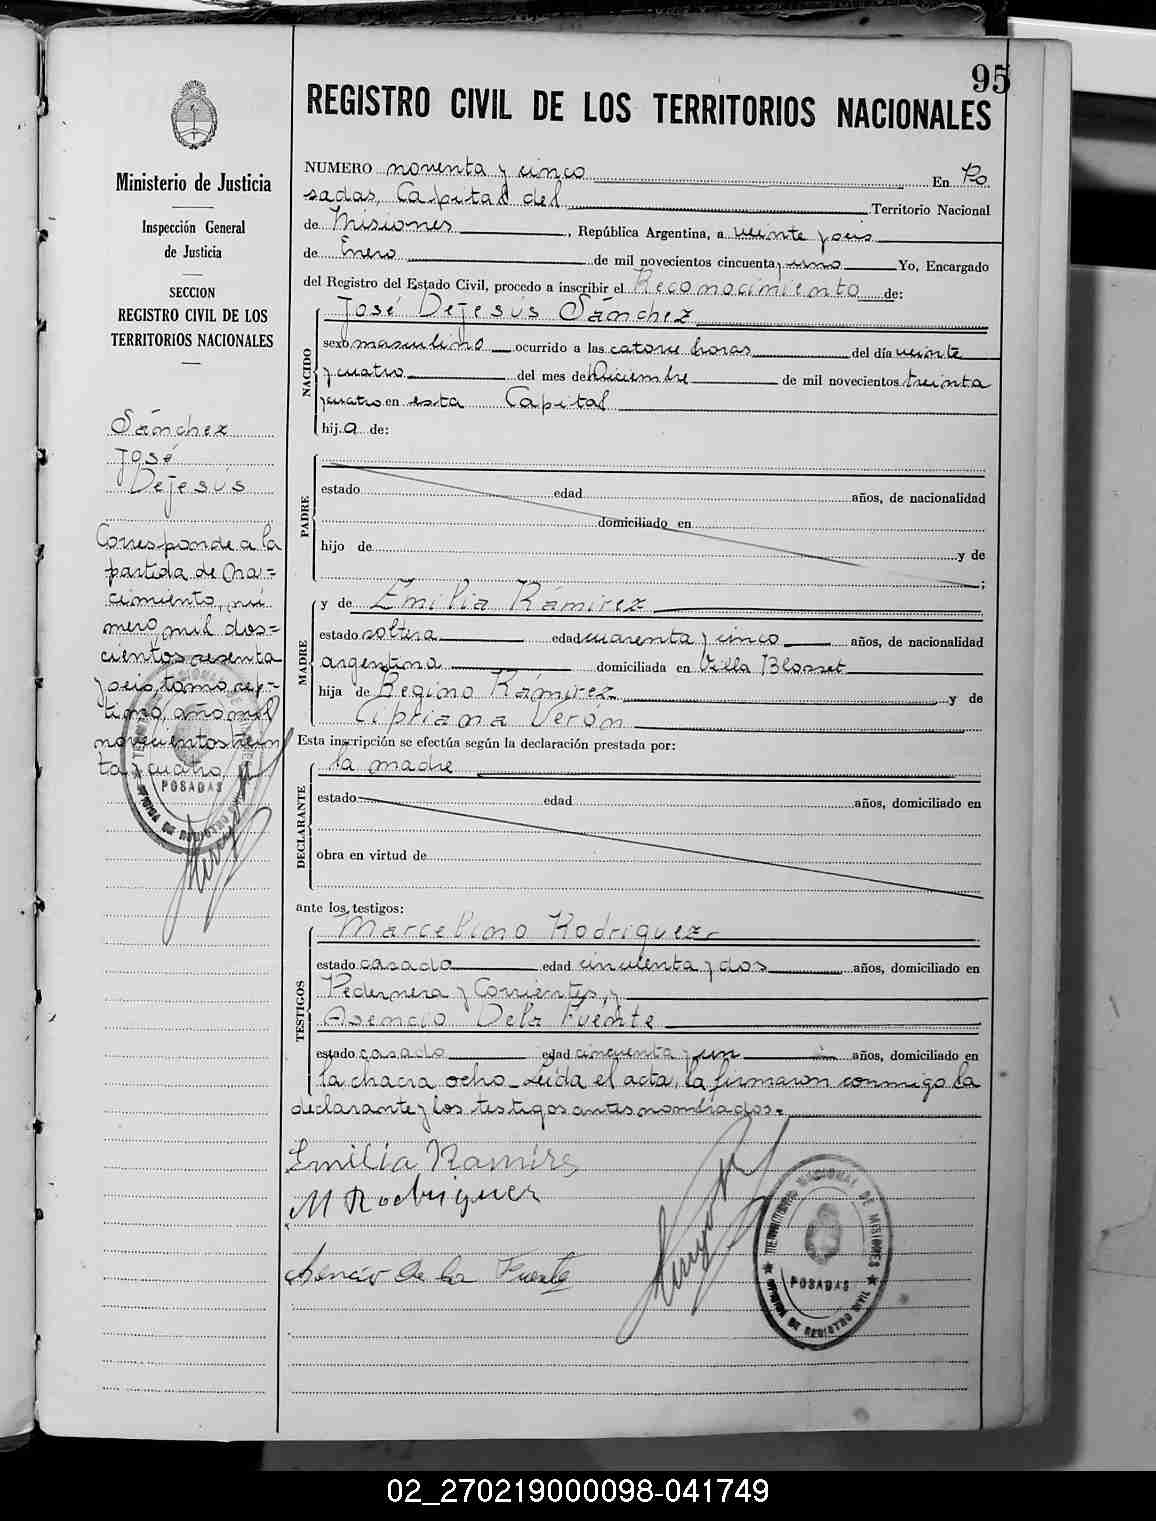 95
REGISTRO CIVIL DE LOS TERRITORIOS NACIONALES
Ministerio de Justicia
Inspección General
de Justicia
SECCION
REGISTRO CIVIL DE LOS
TERRITORIOS NACIONALES
Sánchez
José
Dejesús
Corresponde a la
partida de na-
cimiento, nú
mero, mil dos=
cientos sesenta
y seis, tomo sép-
timo, año mil
novecientos trein
ta y cuatro.
TERRITORIO NACIONAL DE MISIONES
POSADAS
OFICINA DE REGISTRO CIVIL
NUMERO noventa y cinco En Po
sadas, Capital del Territorio Nacional
de Misiones, República Argentina, a veinte y seis
de Enero de mil novecientos cincuenta y uno Yo, Encargado
del Registro del Estado Civil, procedo a inscribir el Reconocimiento de:
NACIDO
José Dejesús Sánchez
sexo masculino ocurrido a las catorce horas del día veinte
y cuatro del mes de Diciembre de mil novecientos treinta
y cuatro en esta Capital
hij.a de:
PADRE
estado edad años, de nacionalidad
domiciliado en
hijo de y de
;
MADRE
y de Emilia Rámirez
estado soltera edad cuarenta y cinco años, de nacionalidad
argentina domiciliada en Villa Blosset
hija de Regino Rámirez y de
Cipriana Verón
Esta inscripción se efectúa según la declaración prestada por:
DECLARANTE
la madre
estado edad años, domiciliado en
obra en virtud de
ante los testigos:
TESTIGOS
Marcelino Rodriguez
estado casado edad cincuenta y dos años, domiciliado en
Pedernera y Corrientes, y
Asencio Dela Fuente
estado casado edad cincuenta y un años, domiciliado en
la chacra ocho_Leída el acta, la firmaron conmigo la
declarante y los testigos antes nombrados=
Emilia Ramires
M Rodriguez
Asencio de la Fuente
TERRITORIO NACIONAL DE MISIONES
POSADAS
OFICINA DE REGISTRO CIVIL
02_270219000098-041749